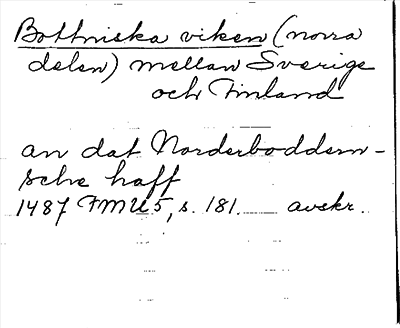 Bottniska viken (norra
delen) mellan Sverige
och Finland
an dat Norderboddem-
sche haff
1487 FMU 5, s. 181. avskr.